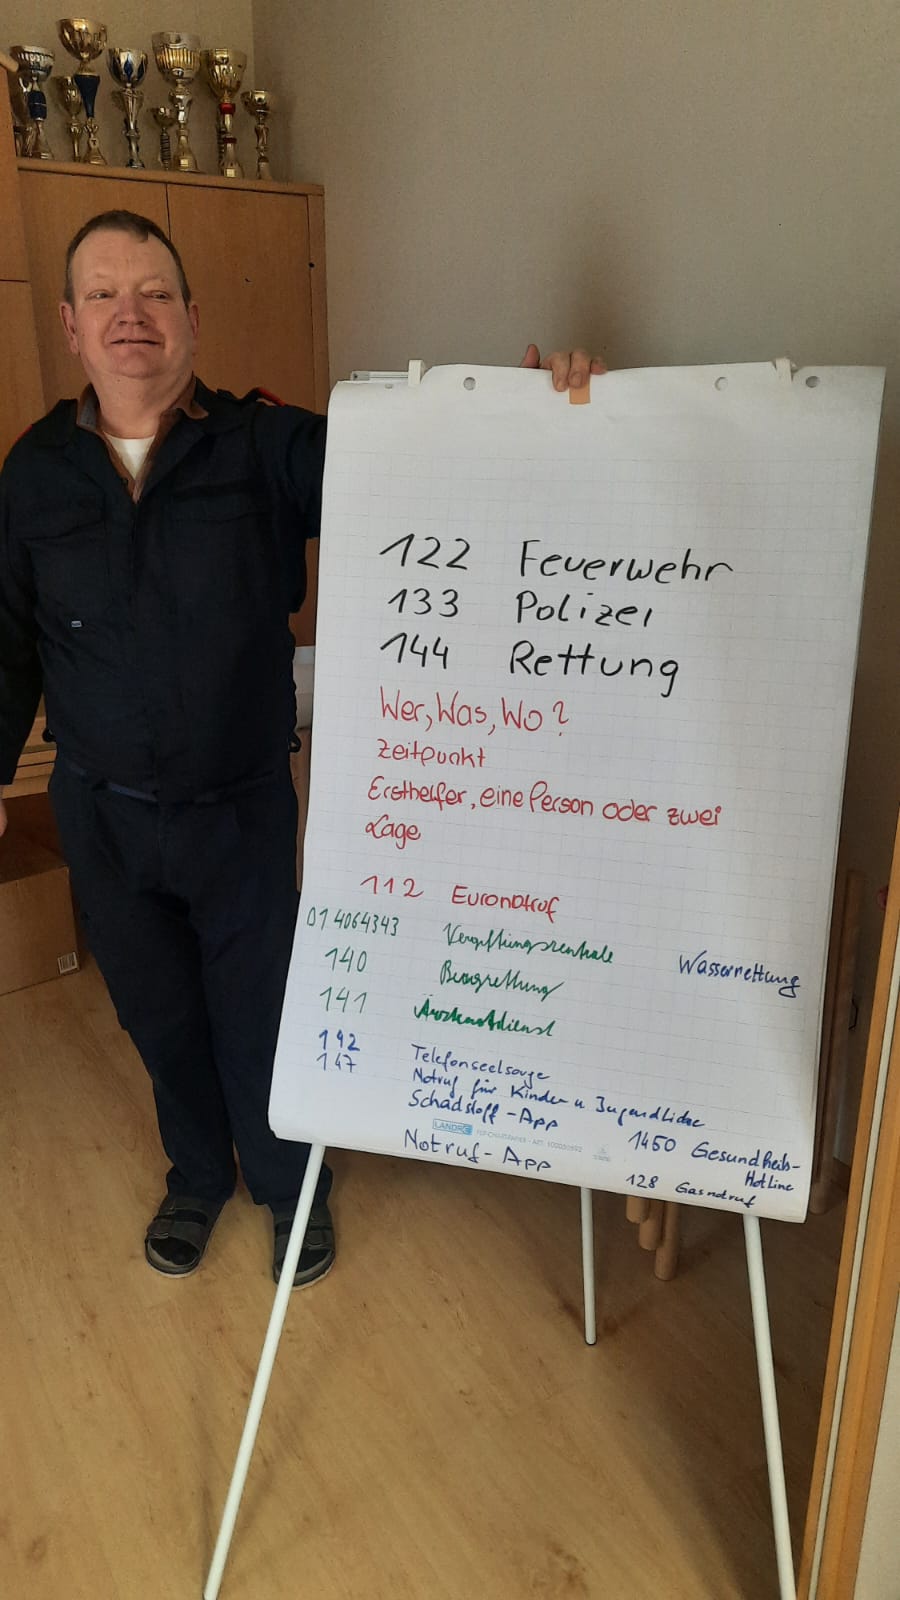 122 Feuerwehr
133 Polizei
144 Rettung
Wer, Was, Wo?
Zeitpunkt
Ersthelfer, eine Person oder zwei
Lage
112 Euronotruf
01 4064343 Vergiftungszentrale
Wasserrettung
140 Bergrettung
141 Ärztenotdienst
142 Telefonseelsorge
147 Notruf für Kinder u Jugendliche
Schadstoff-App
Notruf-App
1450 Gesundheits-
Hotline
128 Gasnotruf
LANDRÉ